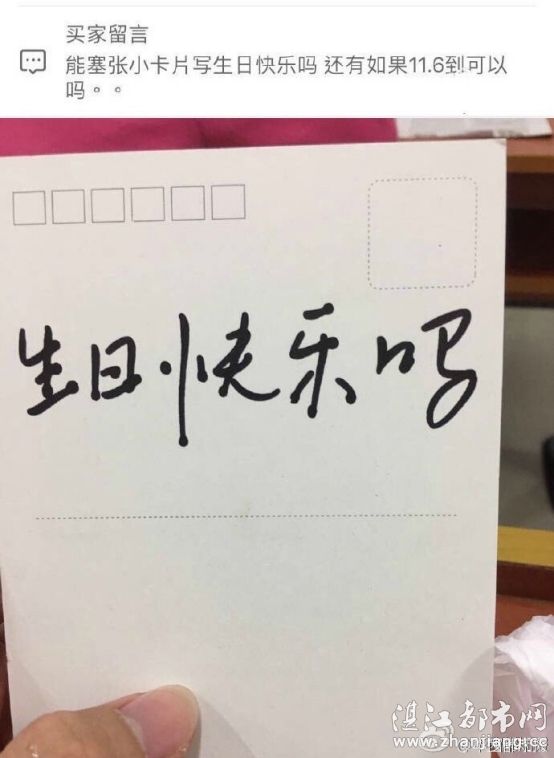 买家留言
能塞张小卡片写生日快乐吗 还有如果11.6到可以
吗。。
生日快乐吗
湛江都市网
www.zhanjiang.cc